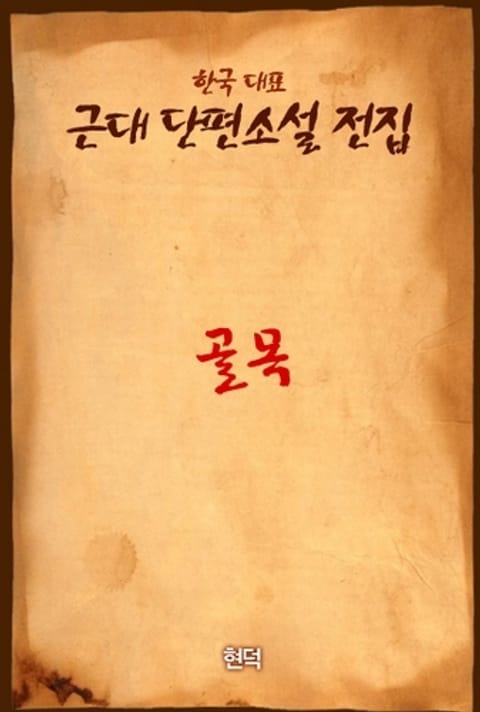 한국 대표
근대 단편소설 전집
골목
현덕